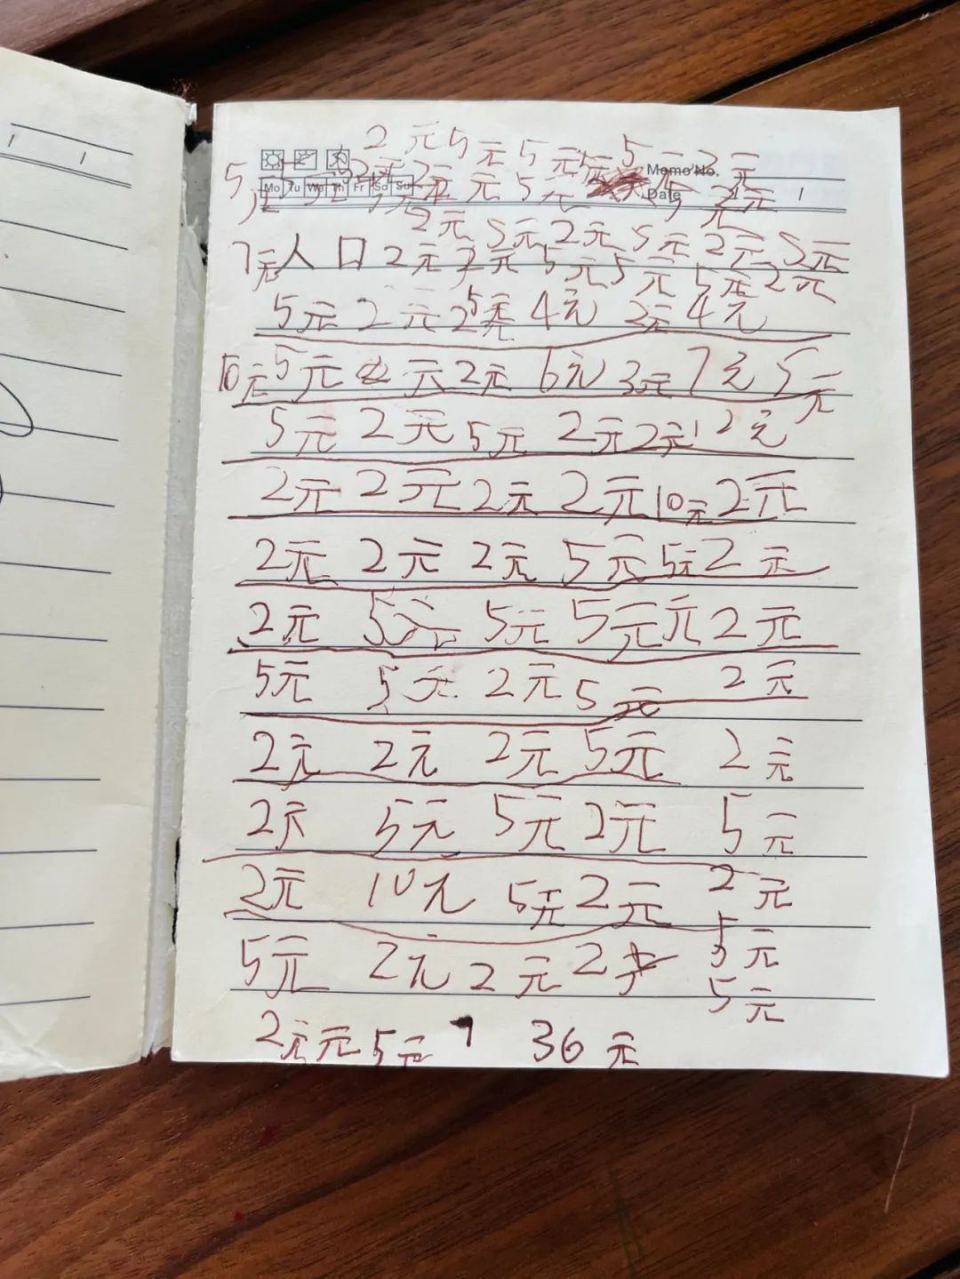 2元 5元 5元 5元 5元 2元
Memo No.
Mo Tu We Th Fr Sa Su
Date / /
2元 5元 2元 5元 2元 5元
7元 人 口 2元 2元 5元 5元 5元 2元
5元 2元 4元 2元 4元
10元 5元 元 2元 6元 3元 7元 5元
5元 2元 5元 2元 2元 12元
2元 2元 2元 2元 10元 2元
2元 2元 2元 5元 5元 2元
2元 5元 5元 5元 元 2元
5元 5元 2元 5元 2元
2元 2元 2元 5元 2元
2元 5元 5元 2元 5元
2元 10元 5元 2元 2元
5元 2元 2元 2 5元
5元
2元 元 5元 36元